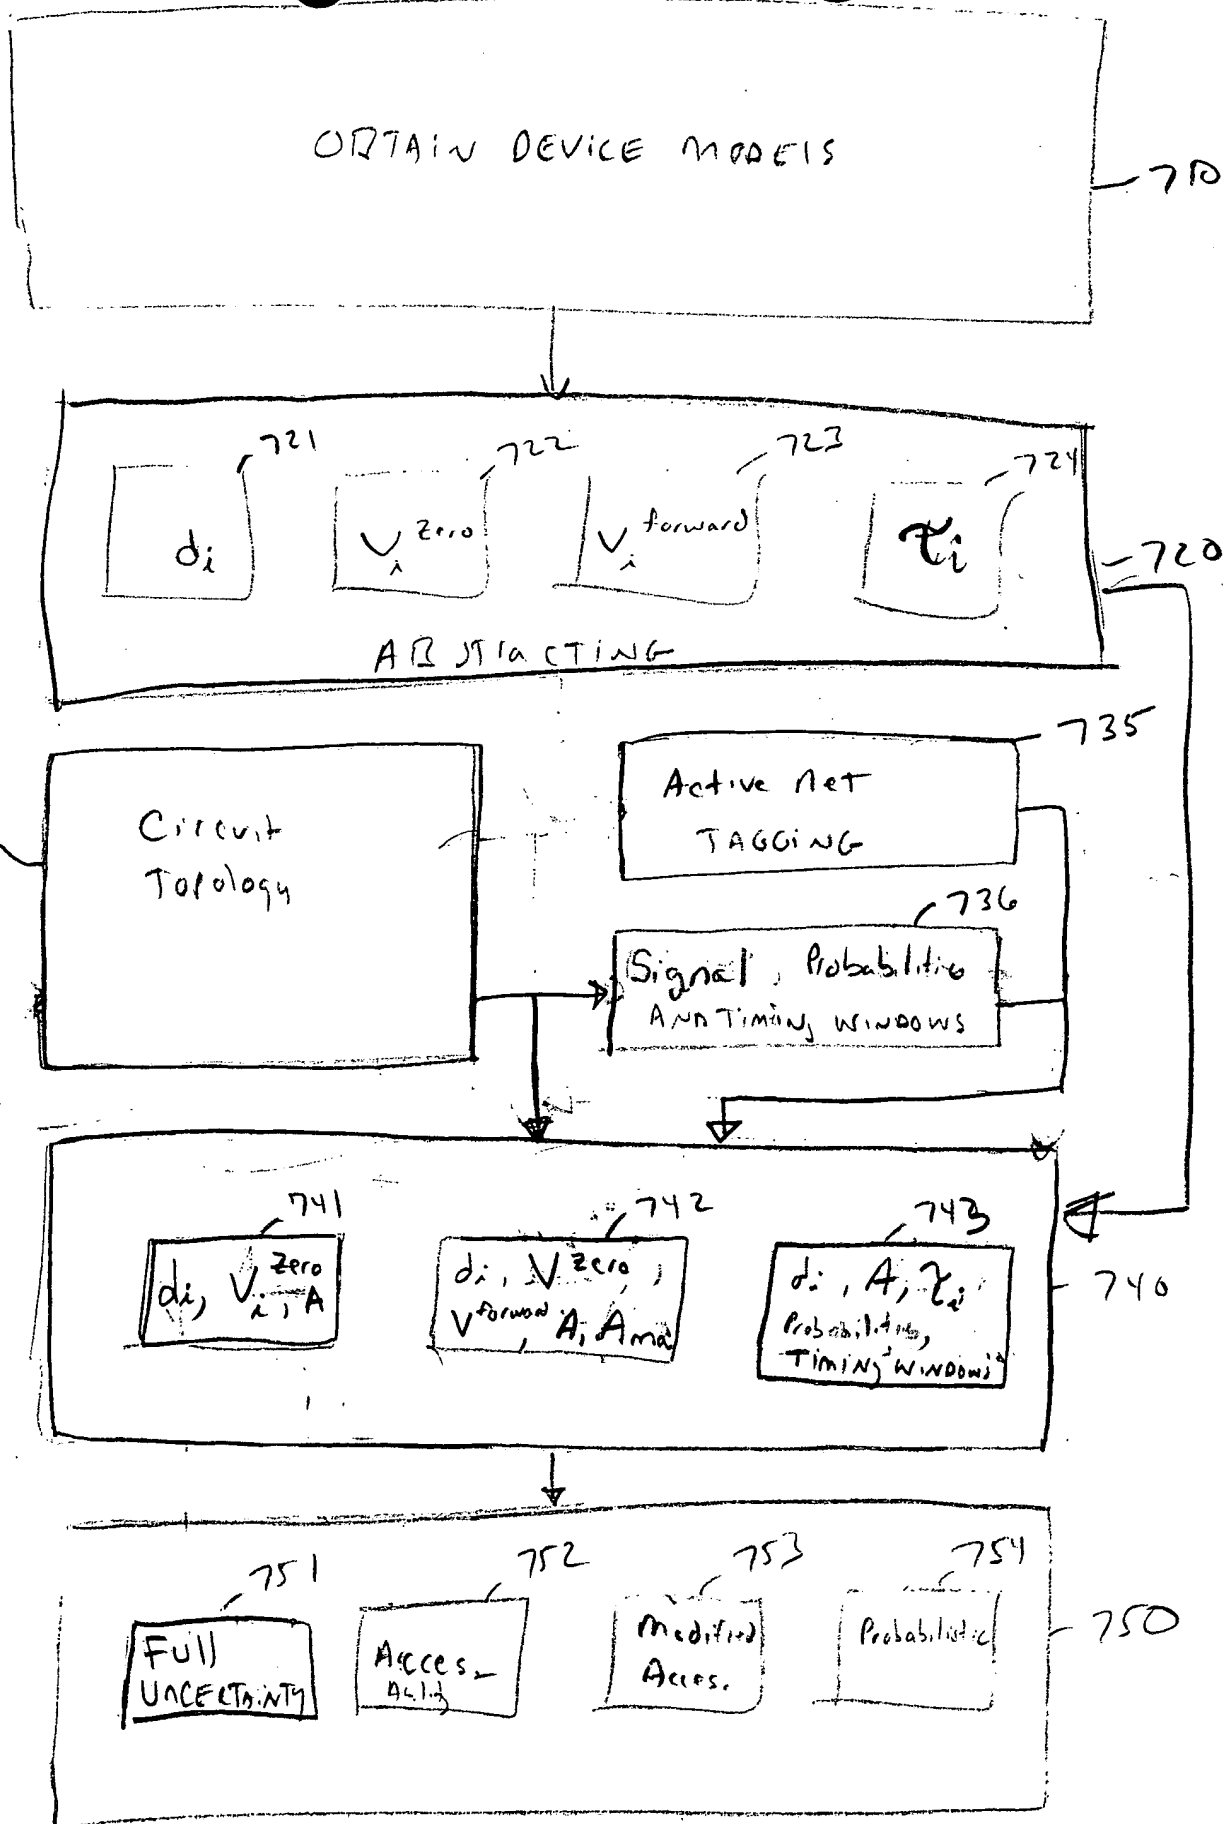 OBTAIN DEVICE MODELS
710
721
722
723
724
d_i
V_i^zero
V_i^forward
τ_i
720
ABSTRACTING
735
Circuit
Topology
Active Net
TAGGING
736
Signal, Probabilities
AND TIMING WINDOWS
741
742
743
d_i, V_i^zero, A
d_i, V^zero,
V^forward, A, A
d_i, A, τ_i,
Probabilities,
TIMING WINDOWS
740
751
752
753
754
Full
UNCERTAINTY
Acces-
Modified
Acces.
Probabilistic
750